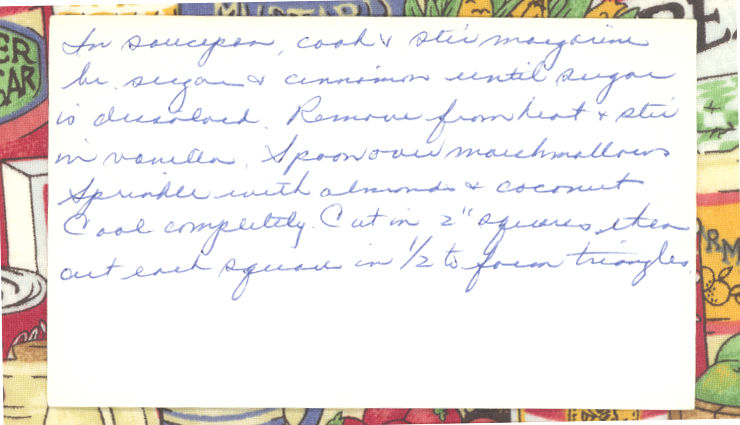 MUSTARD
ER
GAR
PE
ORM
In saucepan, cook & stir margarine
br. sugar & cinnamon until sugar
is dissolved. Remove from heat & stir
in vanilla. Spoon over marshmallows
Sprinkle with almonds & coconut
Cool completely. Cut in 2" squares, then
cut each square in 1/2 to form triangles.